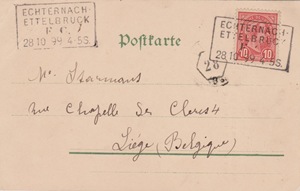 ECHTERNACH-
ETTELBRUCK
F. C. 1
28.10 99 4-5S.
ECHTERNACH-
ETTELBRUCK
28.10 99 4-5S.
10 10
Postkarte
28
Rue Chapelle des Clercs 4
Liége (Belgique)